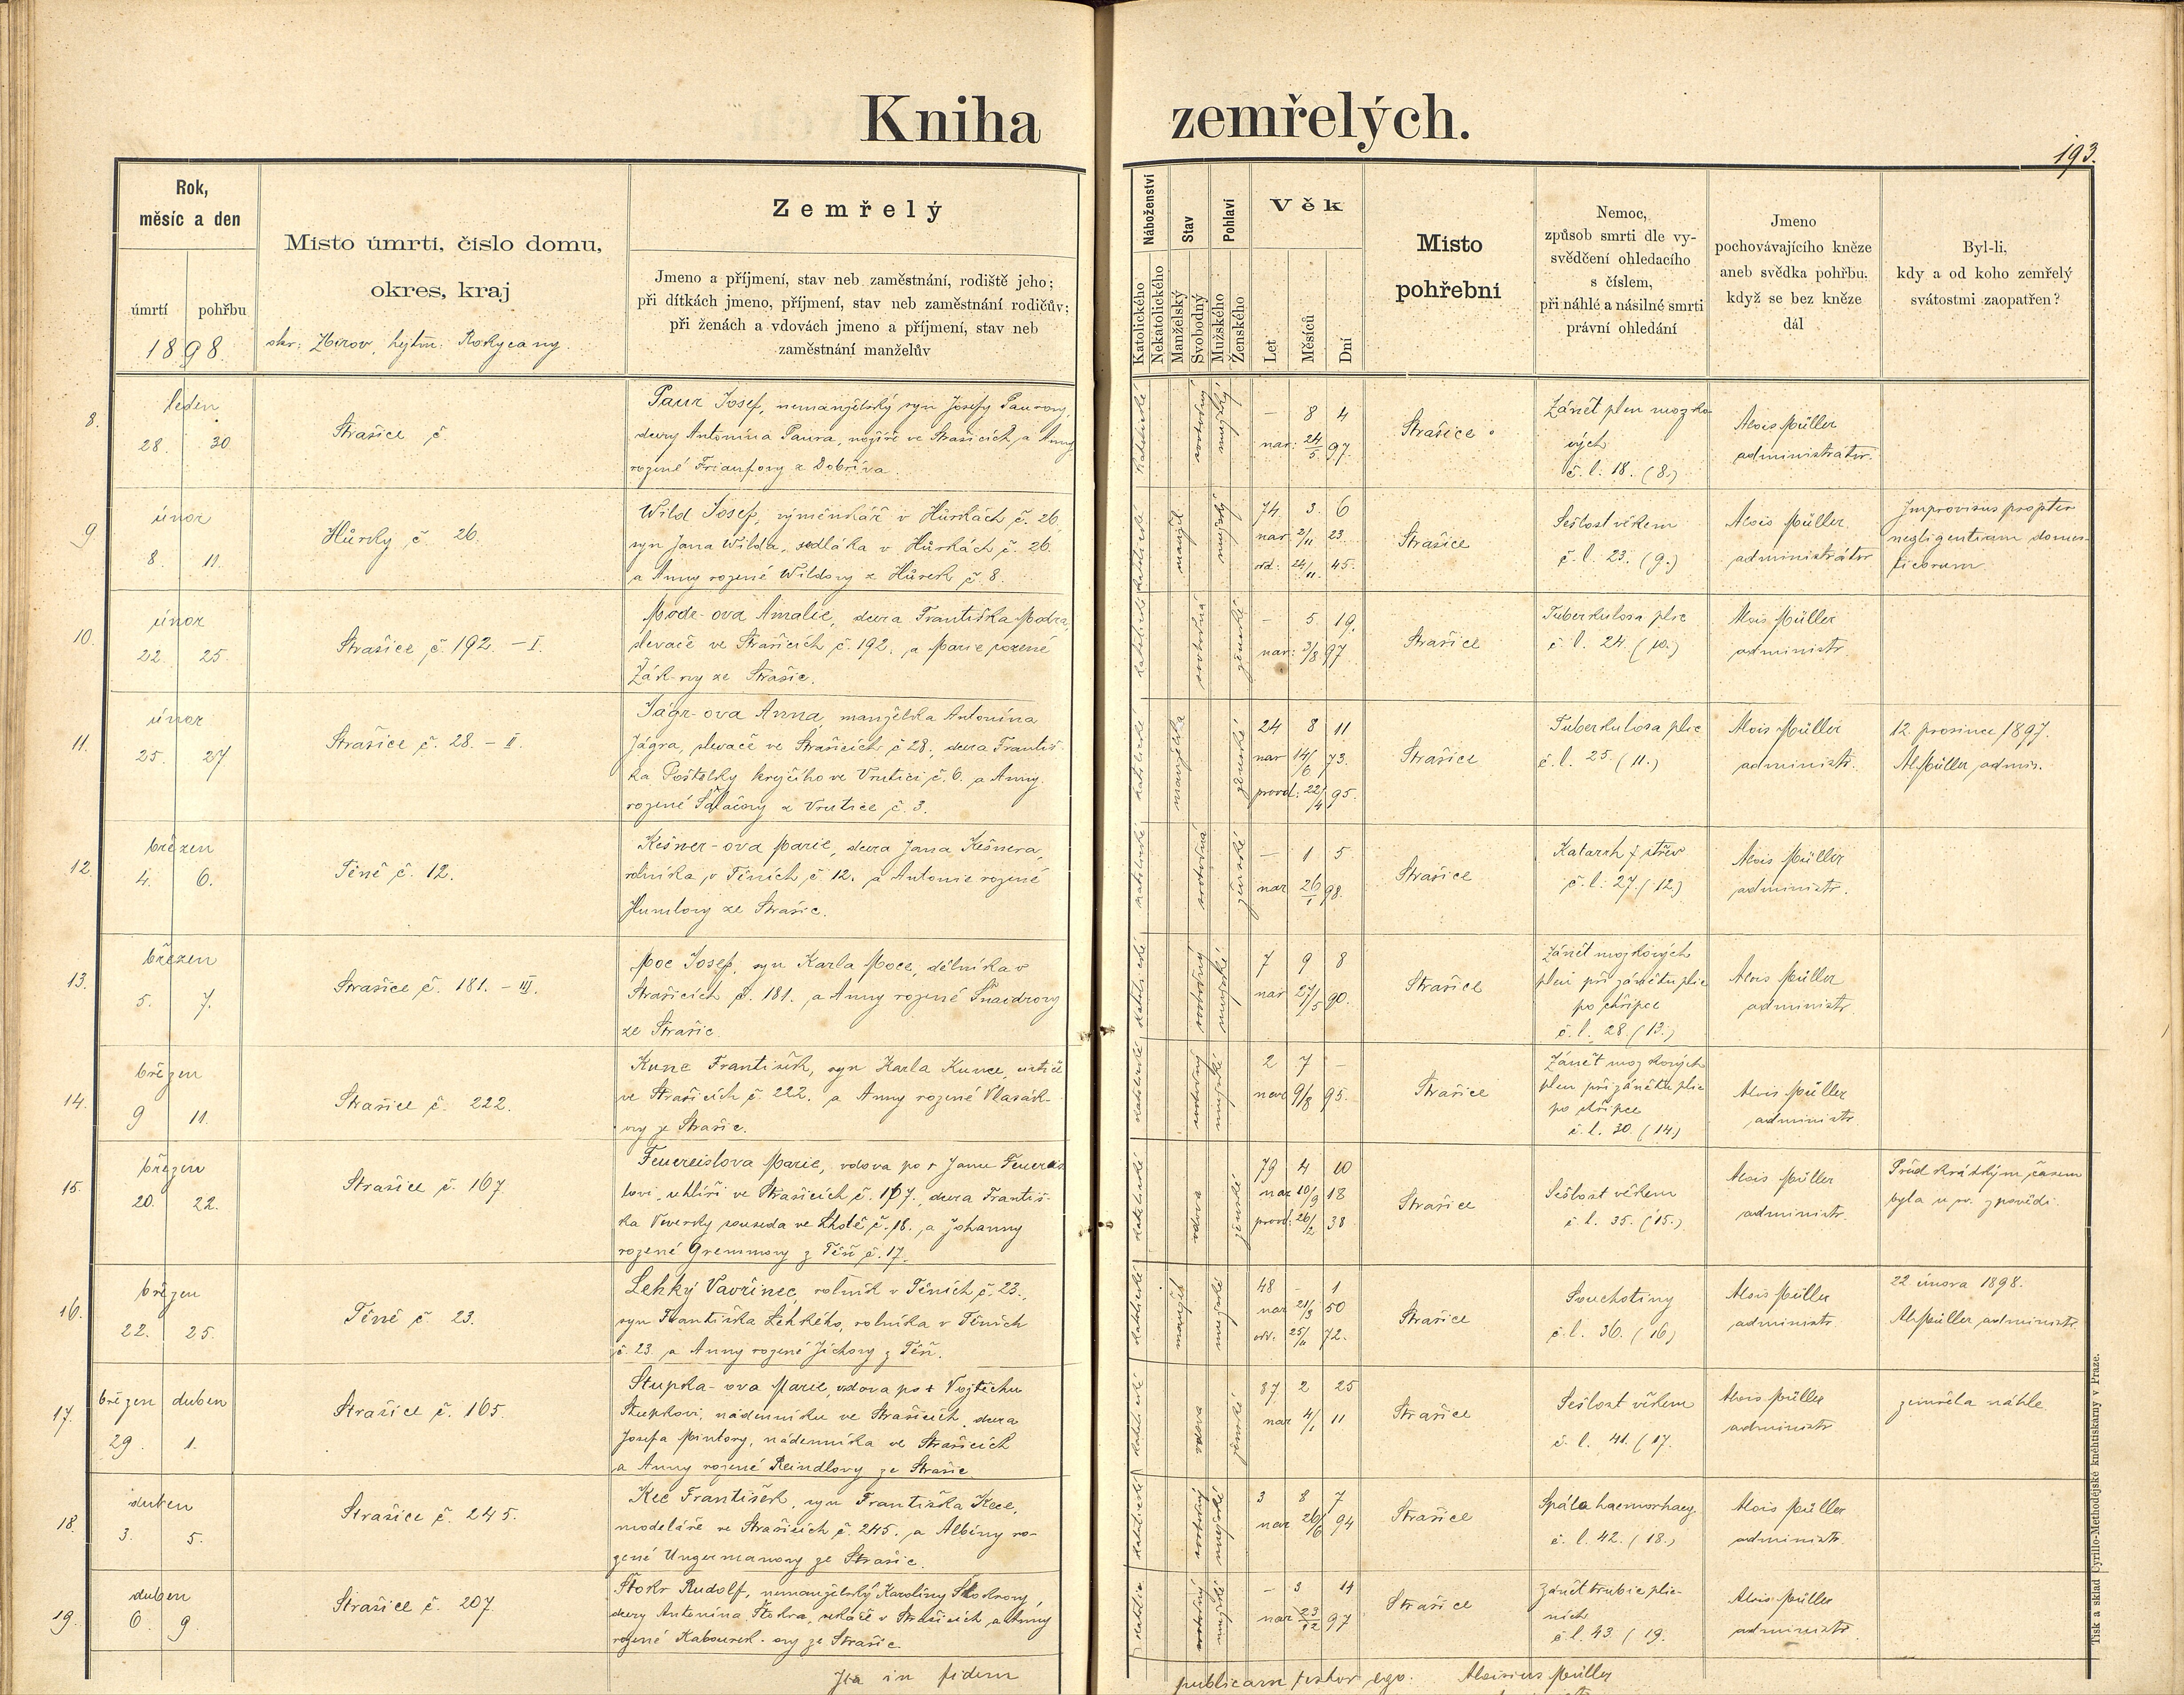 Kniha zemřelých.
193.
Rok,
měsíc a den
úmrtí
pohřbu
1898.
Místo úmrtí, číslo domu,
okres, kraj
okr: Zbirov, hejtm: Rokycany.
Zemřelý
Jmeno a příjmení, stav neb zaměstnání, rodiště jeho;
při dítkách jmeno, příjmení, stav neb zaměstnání rodičův;
při ženách a vdovách jmeno a příjmení, stav neb
zaměstnání manželův
Náboženství
Katolického
Nekatolického
Stav
Manželský
Svobodný
Pohlaví
Mužského
Ženského
Věk
Let
Měsíců
Dní
Místo
pohřební
Nemoc,
způsob smrti dle vy-
svědčení ohledacího
s číslem,
při náhlé a násilné smrti
právní ohledání
Jmeno
pochovávajícího kněze
aneb svědka pohřbu,
když se bez kněze
dál
Byl-li,
kdy a od koho zemřelý
svátostmi zaopatřen?
8.
leden
28. 30.
Strašice č.
Paur Josef, nemanželský syn Josefy Paurovy,
dcery Antonína Paura, nožíře ve Strašicích, a Anny
rozené Frianfovy z Dobříva.
katolické
svobodný
mužský
— 8 4
nar: 24/5 97.
Strašice
Zánět plen mozko-
vých
č. l. 18. (8.)
Alois Müller
administrátor.
9
únor
8. 11.
Hůrky č. 26.
Wild Josef, výměnkář v Hůrkách č. 26,
syn Jana Wilda, sedláka v Hůrkách č. 26.
a Anny rozené Wildovy z Hůrek č 8.
katolické
manžel.
mužský
74. 3. 6
nar 2/11 23.
odd: 24/11. 45.
Strašice
Sešlost věkem
č. l. 23. (9.)
Alois Müller
administrátor
Improvisus propter
negligentiam domes-
ticorum.
10.
únor
22. 25.
Strašice č. 192. – I.
Modr-ova Amalie, dcera Františka Modra,
slevače ve Strašicích č. 192. a Marie rozené
Žák-ovy ze Strašic.
katolické
svobodná
ženské
— 5. 19.
nar: 3/8 97
Strašice
Tuberkulosa plic
č. l. 24. (10.)
Alois Müller
administr.
11.
únor
25. 27
Strašice č. 28. – II.
Jágr-ova Anna, manželka Antonína
Jágra, slevače ve Strašicích č 28, dcera Františ-
ka Poštolky krejčího ve Vrutici č. 6. a Anny
rozené Sdlačovy z Vrutice č. 3.
katolické
manželka
ženské
24 8 11
nar 14/6 73.
provd: 22/4 95.
Strašice
Tuberkulosa plic
č. l. 25. (11.)
Alois Müller
administr.
12. prosince 1897.
Al Müller admin.
12.
březen
4. 6.
Těně č. 12.
Kešner-ova Marie, dcera Jana Kešnera,
rolníka v Těních č. 12. a Antonie rozené
Humlovy ze Strašic.
katolické
svobodná
ženské
— 1 5
nar 26/1 98.
Strašice
Katarrh střev
č. l. 27. (12.)
Alois Müller
administr.
13.
březen
5. 7.
Strašice č. 181. – III.
Moc Josef, syn Karla Moce, dělníka v
Strašicích č. 181. a Anny rozené Šnaidrovy
ze Strašic
katolické
svobodný
mužské
7 9 8
nar 27/5 90.
Strašice
Zánět mozkových
plen při zánětu plic
po chřipce
č. l. 28. (13.)
Alois Müller
administr.
14.
březen
9 11.
Strašice č. 222.
Kunc František, syn Karla Kunce,
ve Strašicích č. 222. a Anny rozené Vlasák-
ovy ze Strašic.
katolické
svobodný
mužské
2 7 –
nar 9/8 95.
Strašice
Zánět mozkových
plen při zánětu plic
po chřipce
č. l. 30. (14)
Alois Müller
administr.
15.
březen
20. 22.
Strašice č. 167
Feuereislova Marie, vdova po † Janu Feuereis-
lovi, uhlíři ve Strašicích č. 167. dcera Františ-
ka Viverky souseda ve Lhotě č. 18. a Johanny
rozené Gremmovy z Těň č. 17.
katolické
vdova
ženské
79 4 10
nar 10/9 18
provd: 26/2 38
Strašice
Sešlost věkem
č. l. 35. (15.)
Alois Müller
administr.
Před krátkým časem
byla u sv. zpovědi.
16.
březen
22. 25.
Těně č 23.
Lehký Vavřinec, rolník v Těních č. 23.,
syn Františka Lehkého, rolníka v Těních
č. 23. a Anny rozené Jíchovy z Těň.
katolické
manžel
mužské
48 – 1
nar 21/3 50
odd. 25/11 72.
Strašice
Souchotiny
č. l. 36. (16)
Alois Müller
administr
22 února 1898.
Al Müller administr.
17.
březen duben
29. 1.
Strašice č. 165.
Stupka-ova Marie, vdova po † Vojtěchu
Stupkovi, nádenníku ve Strašicích, dcera
Josefa Mintory, nádenníka ve Strašicích
a Anny rozené Reindlovy ze Strašic
katolické
vdova
ženské
87 2 25
nar 4/1 11
Strašice
Sešlost věkem
č. l. 41. (17.
Alois Müller
administr
zemřela náhle
18.
duben
3. 5.
Strašice č. 245.
Kec František, syn Františka Kece,
modeláře ve Strašicích č. 245. a Albíny ro-
zené Ungermanovy ze Strašic.
katolické
svobodný
mužské
3 8 7
nar 26/6 94
Strašice
Spála haemorhag.
č. l. 42. (18.)
Alois Müller
administr.
19.
duben
6. 9.
Strašice č. 207.
Štokr Rudolf, nemanželský Karolíny Štokrovy,
dcery Antonína Štokra, v Strašicích a Anny
rozené Kabourek-ovy ze Strašic.
katolic
svobodný
mužské
– 3 14
nar 23/12 97
Strašice
Zánět trubic plic-
ních
č. l. 43. (19.
Alois Müller
administr.
Ita in fidem publicam testor ego. Aloisius Müller
Tisk a sklad Cyrillo-Methodějské knihtiskárny v Praze.